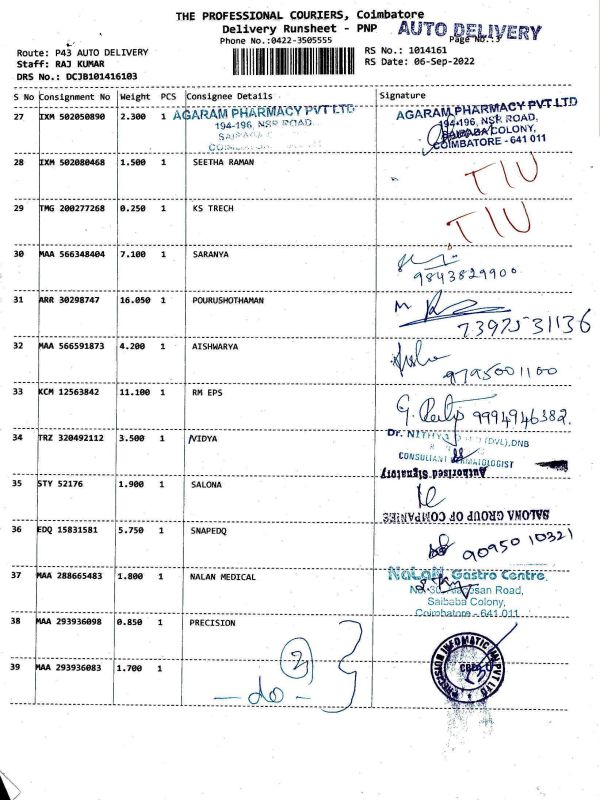 THE PROFESSIONAL COURIERS, Coimbatore
Delivery Runsheet - PNP
AUTO DELIVERY
Phone No.:0422-3505555
Page No.:3
Route: P43 AUTO DELIVERY
RS No.: 1014161
Staff: RAJ KUMAR
RS Date: 06-Sep-2022
DRS No.: DCJB101416103
S No Consignment No Weight PCS Consignee Details Signature
27 IXM 502050890 2.300 1 AGARAM PHARMACY PVT LTD AGARAM PHARMACY PVT LTD
194-196, NSR ROAD, 194-196, NSR ROAD,
SAIBABA COLONY,
COIMBATORE - 641 011
28 IXM 502080468 1.500 1 SEETHA RAMAN TIU
29 TMG 200277268 0.250 1 KS TRECH TIU
30 MAA 566348404 7.100 1 SARANYA
9843829900
31 ARR 30298747 16.050 1 POURUSHOTHAMAN
73975 31136
32 MAA 566591873 4.200 1 AISHWARYA
9795001100
33 KCM 12563842 11.100 1 RM EPS 9994946382.
34 TRZ 320492112 3.500 1 VIDYA
(DVL),DNB
CONSULTANT DERMATOLOGIST
Authorised Signatory
35 STY 52176 1.900 1 SALONA
SALONA GROUP OF COMPANIES
36 EDQ 15831581 5.750 1 SNAPEDQ 90950 10321
37 MAA 288665483 1.800 1 NALAN MEDICAL NaLaN Gastro Centre,
Saibaba Colony,
Coimbatore - 641 011
38 MAA 293936098 0.850 1 PRECISION
2
39 MAA 293936083 1.700 1 - do -
PRECISION INFOMATIC (M) PVT LTD